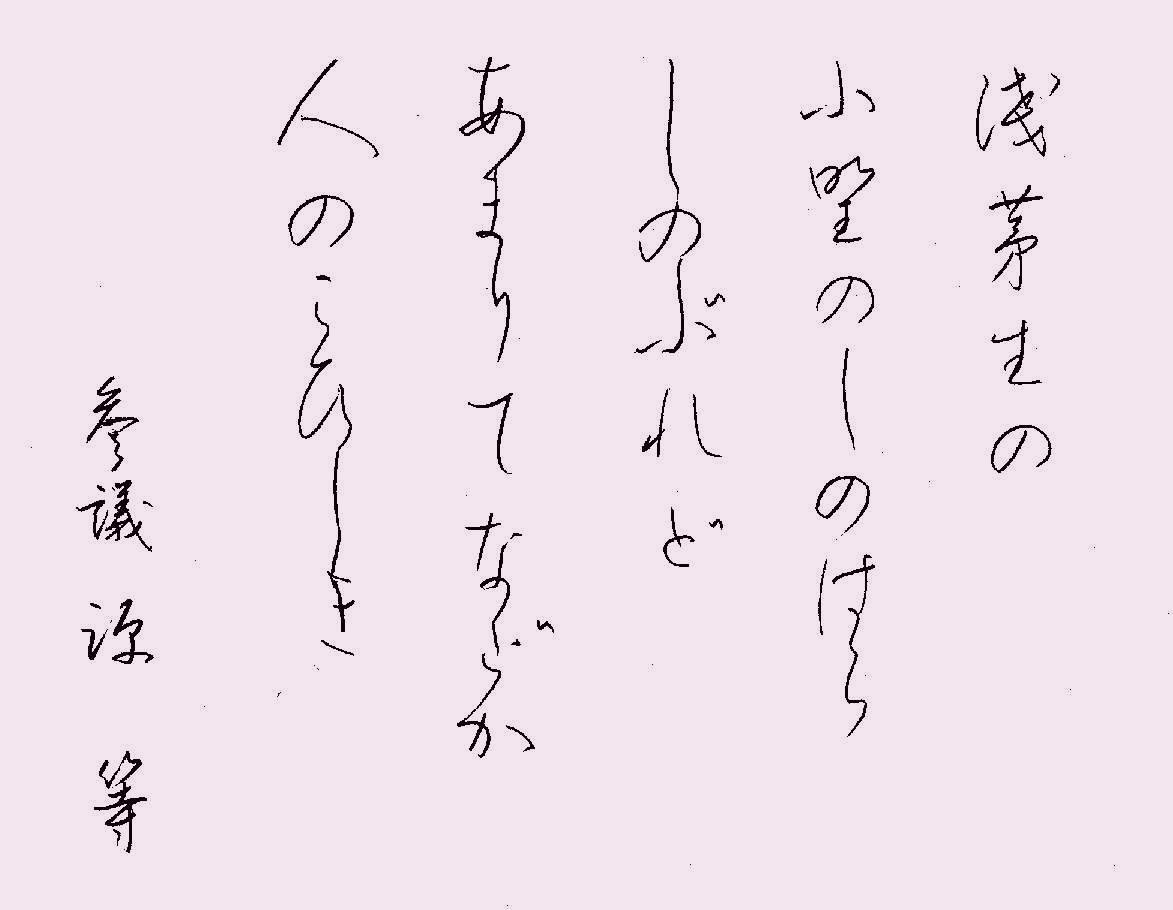 浅茅生の
小野のしのはら
しのぶれど
あまりてなどか
人のこひしき
参議 源 等